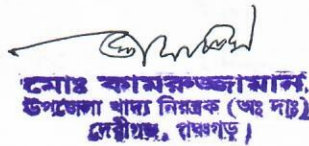 মোঃ কামরুজ্জামান
উপজেলা খাদ্য নিয়ন্ত্রক (অঃ দাঃ)
দেবীগঞ্জ, পঞ্চগড়।